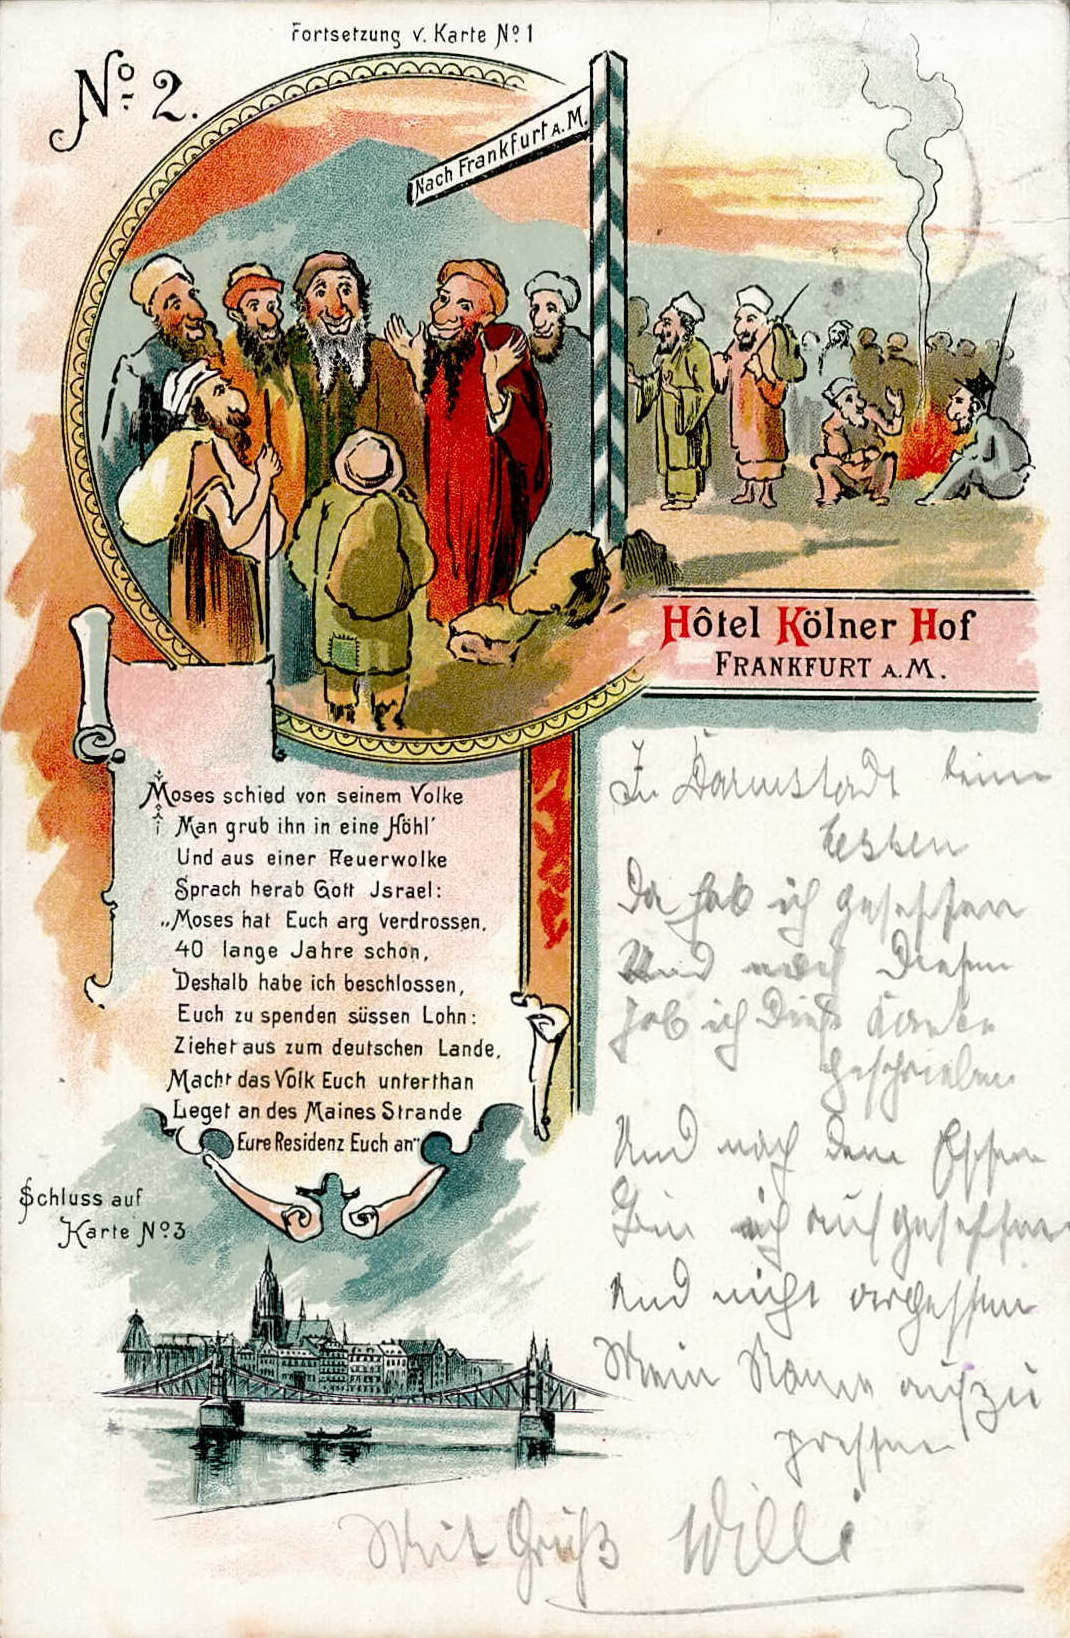 Fortsetzung v. Karte No. 1
No. 2.
Nach Frankfurt A.M.
Hôtel Kölner Hof
FRANKFURT A.M.
Moses schied von seinem Volke
Man grub ihn in eine Höhl'
Und aus einer Feuerwolke
Sprach herab Gott Jsrael:
„Moses hat Euch arg verdrossen,
40 lange Jahre schon,
Deshalb habe ich beschlossen,
Euch zu spenden süssen Lohn:
Ziehet aus zum deutschen Lande,
Macht das Volk Euch unterthan
Leget an des Maines Strande
Eure Residenz Euch an"
Schluss auf
Karte No. 3
In Darmstadt beim
Essen
Da hab ich gesessen
Und nach diesem
hab ich diese Karte
geschrieben
Und nach dem Essen
Bin ich aufgesessen
Und nicht vergessen
Mein Name aufzu
pressen
Mit Gruß Willi